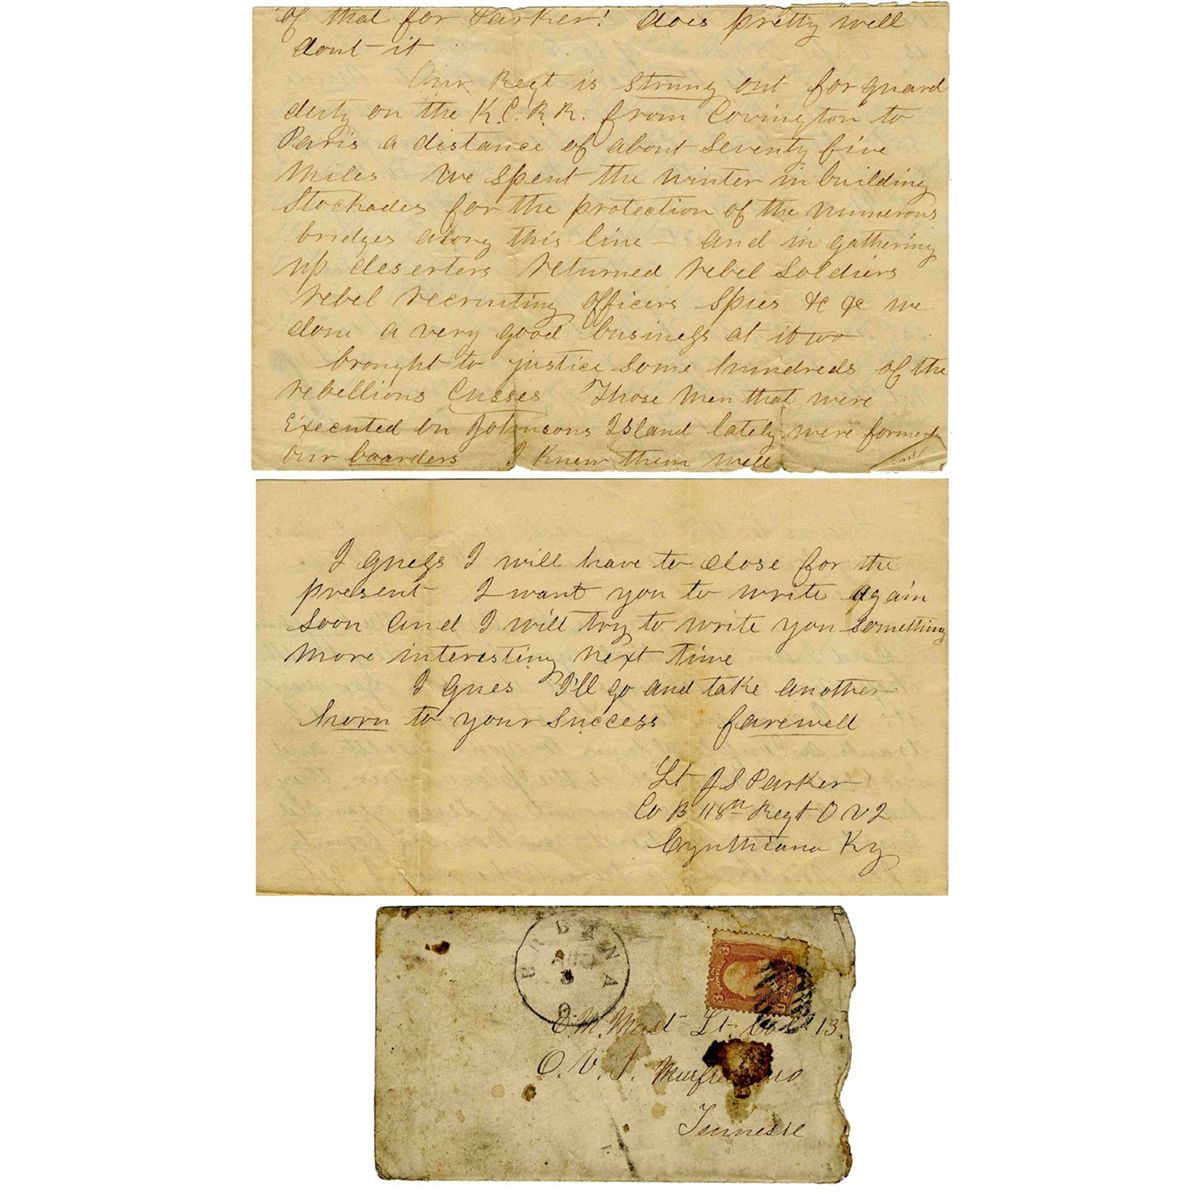 of that for Parker! does pretty well
dont it
Our Regt is strung out for guard
duty on the K.C.R.R. from Covington to
Paris a distance of about Seventy five
Miles We spent the winter in building
Stockades for the protection of the numerous
bridges along this line - and in gathering
up deserters returned rebel Soldiers
rebel recruiting officers Spies &c &c we
done a very good business at it too
brought to justice some hundreds of the
rebellious Cusses Those Men that were
Executed on Johnsons Island lately were formerly
our boarders I knew them well
I guess I will have to close for the
present I want you to write again
Soon and I will try to write you something
more interesting next time
I gues I'll go and take another
horn to your success farewell
Lt J S Parker
Co B 118th Regt O V I
Cynthiana Ky
URBANA
AUG
3
3
Lt. Co. 13
O. V. I.
Tennesse